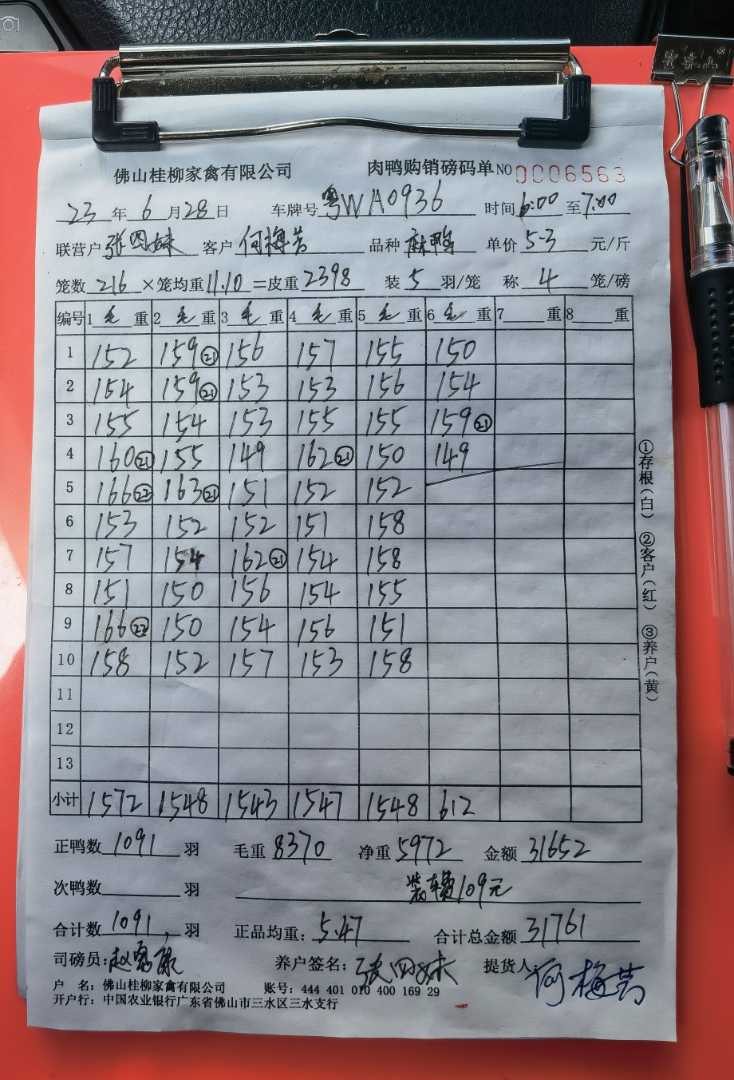 佛山桂柳家禽有限公司 肉鸭购销磅码单 NO 0006563
23 年 6 月 28 日 车牌号 粤WA0936 时间 6:00 至 7:00
联营户 张四妹 客户 何梅芳 品种 麻鸭 单价 5.3 元/斤
笼数 216 ×笼均重 11.10 =皮重 2398 装 5 羽/笼 称 4 笼/磅
编号 1 毛 重 2 毛 重 3 毛 重 4 毛 重 5 毛 重 6 毛 重 7 重 8 重
1 152 159 ㉑ 156 157 155 150
2 154 159 ㉑ 153 153 156 154
3 155 154 153 155 155 159 ㉑
4 160 ㉑ 155 149 162 ㉑ 150 149
5 166 ㉒ 163 ㉑ 151 152 152
6 153 152 152 151 158
7 157 154 162 ㉑ 154 158
8 151 150 156 154 155
9 166 ㉒ 150 154 156 151
10 158 152 157 153 158
11
12
13
小计 1572 1548 1543 1547 1548 612
正鸭数 1091 羽 毛重 8370 净重 5972 金额 31652
次鸭数 羽 装车费109元
合计数 1091 羽 正品均重: 5.47 合计总金额 31761
司磅员: 养户签名: 张四妹 提货人: 何梅芳
户 名: 佛山桂柳家禽有限公司 账号: 444 401 010 400 169 29
开户行: 中国农业银行广东省佛山市三水区三水支行
①存根(白) ②客户(红) ③养户(黄)